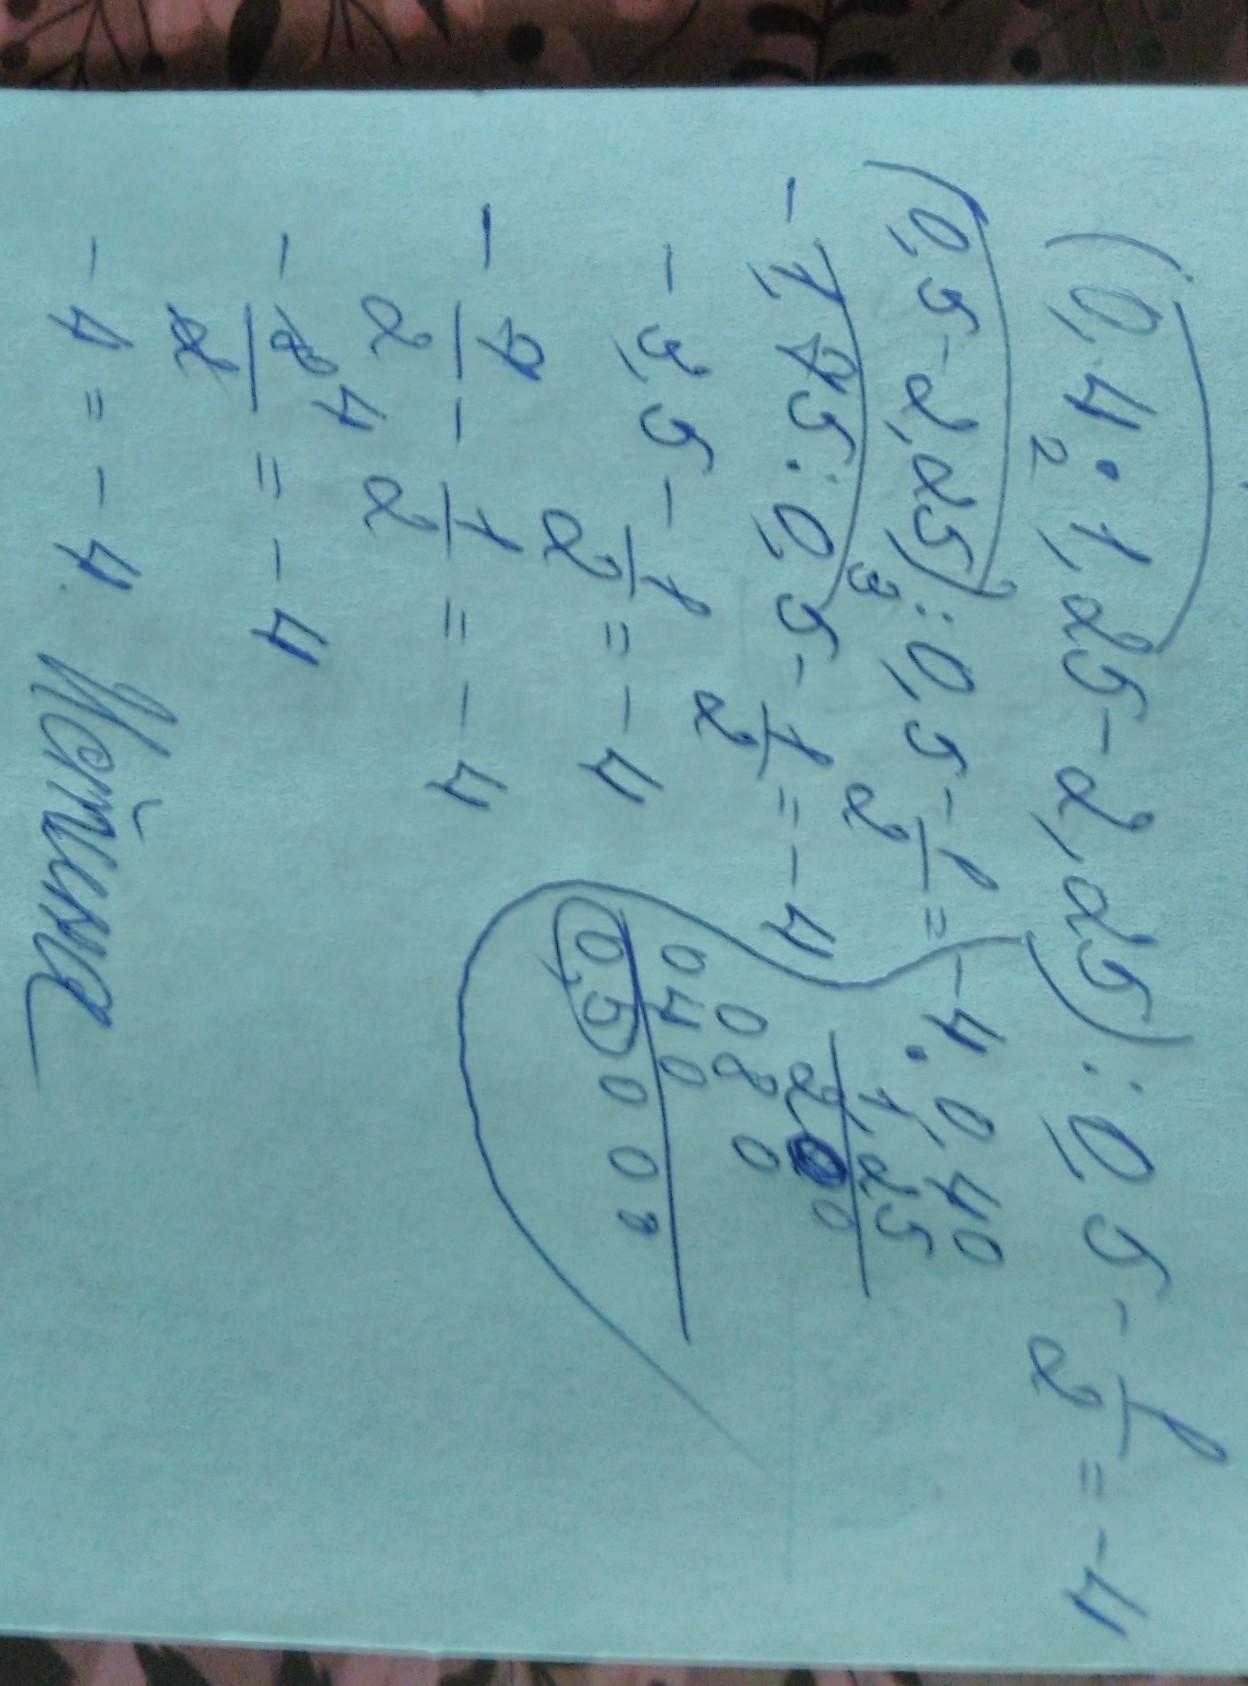 (0,4 · 1,25 - 2,25) : 0,5 - 1/2 = -4
(0,5 - 2,25) : 0,5 - 1/2 = -4
-1,75 : 0,5 - 1/2 = -4
-3,5 - 1/2 = -4
-7/2 - 1/2 = -4
-8/2 = -4
-4 = -4. Истина
0,40
· 1,25
200
080
040
0,5000